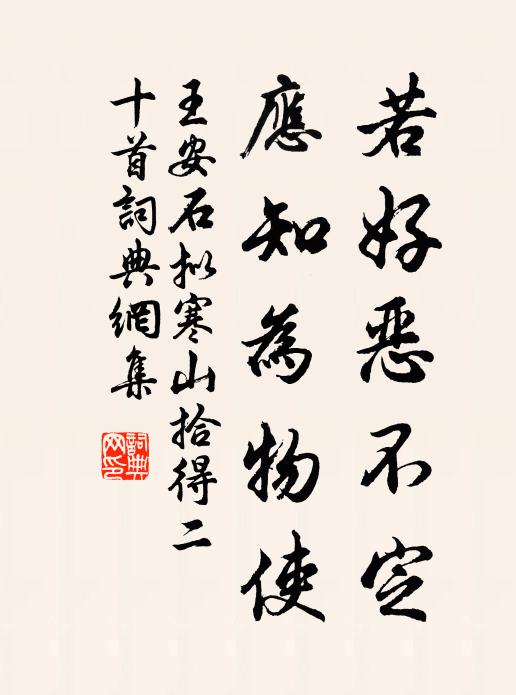 若好恶不定
應知為物使
王安石拟寒山拾得二
十首詞典網集
詞典
网印